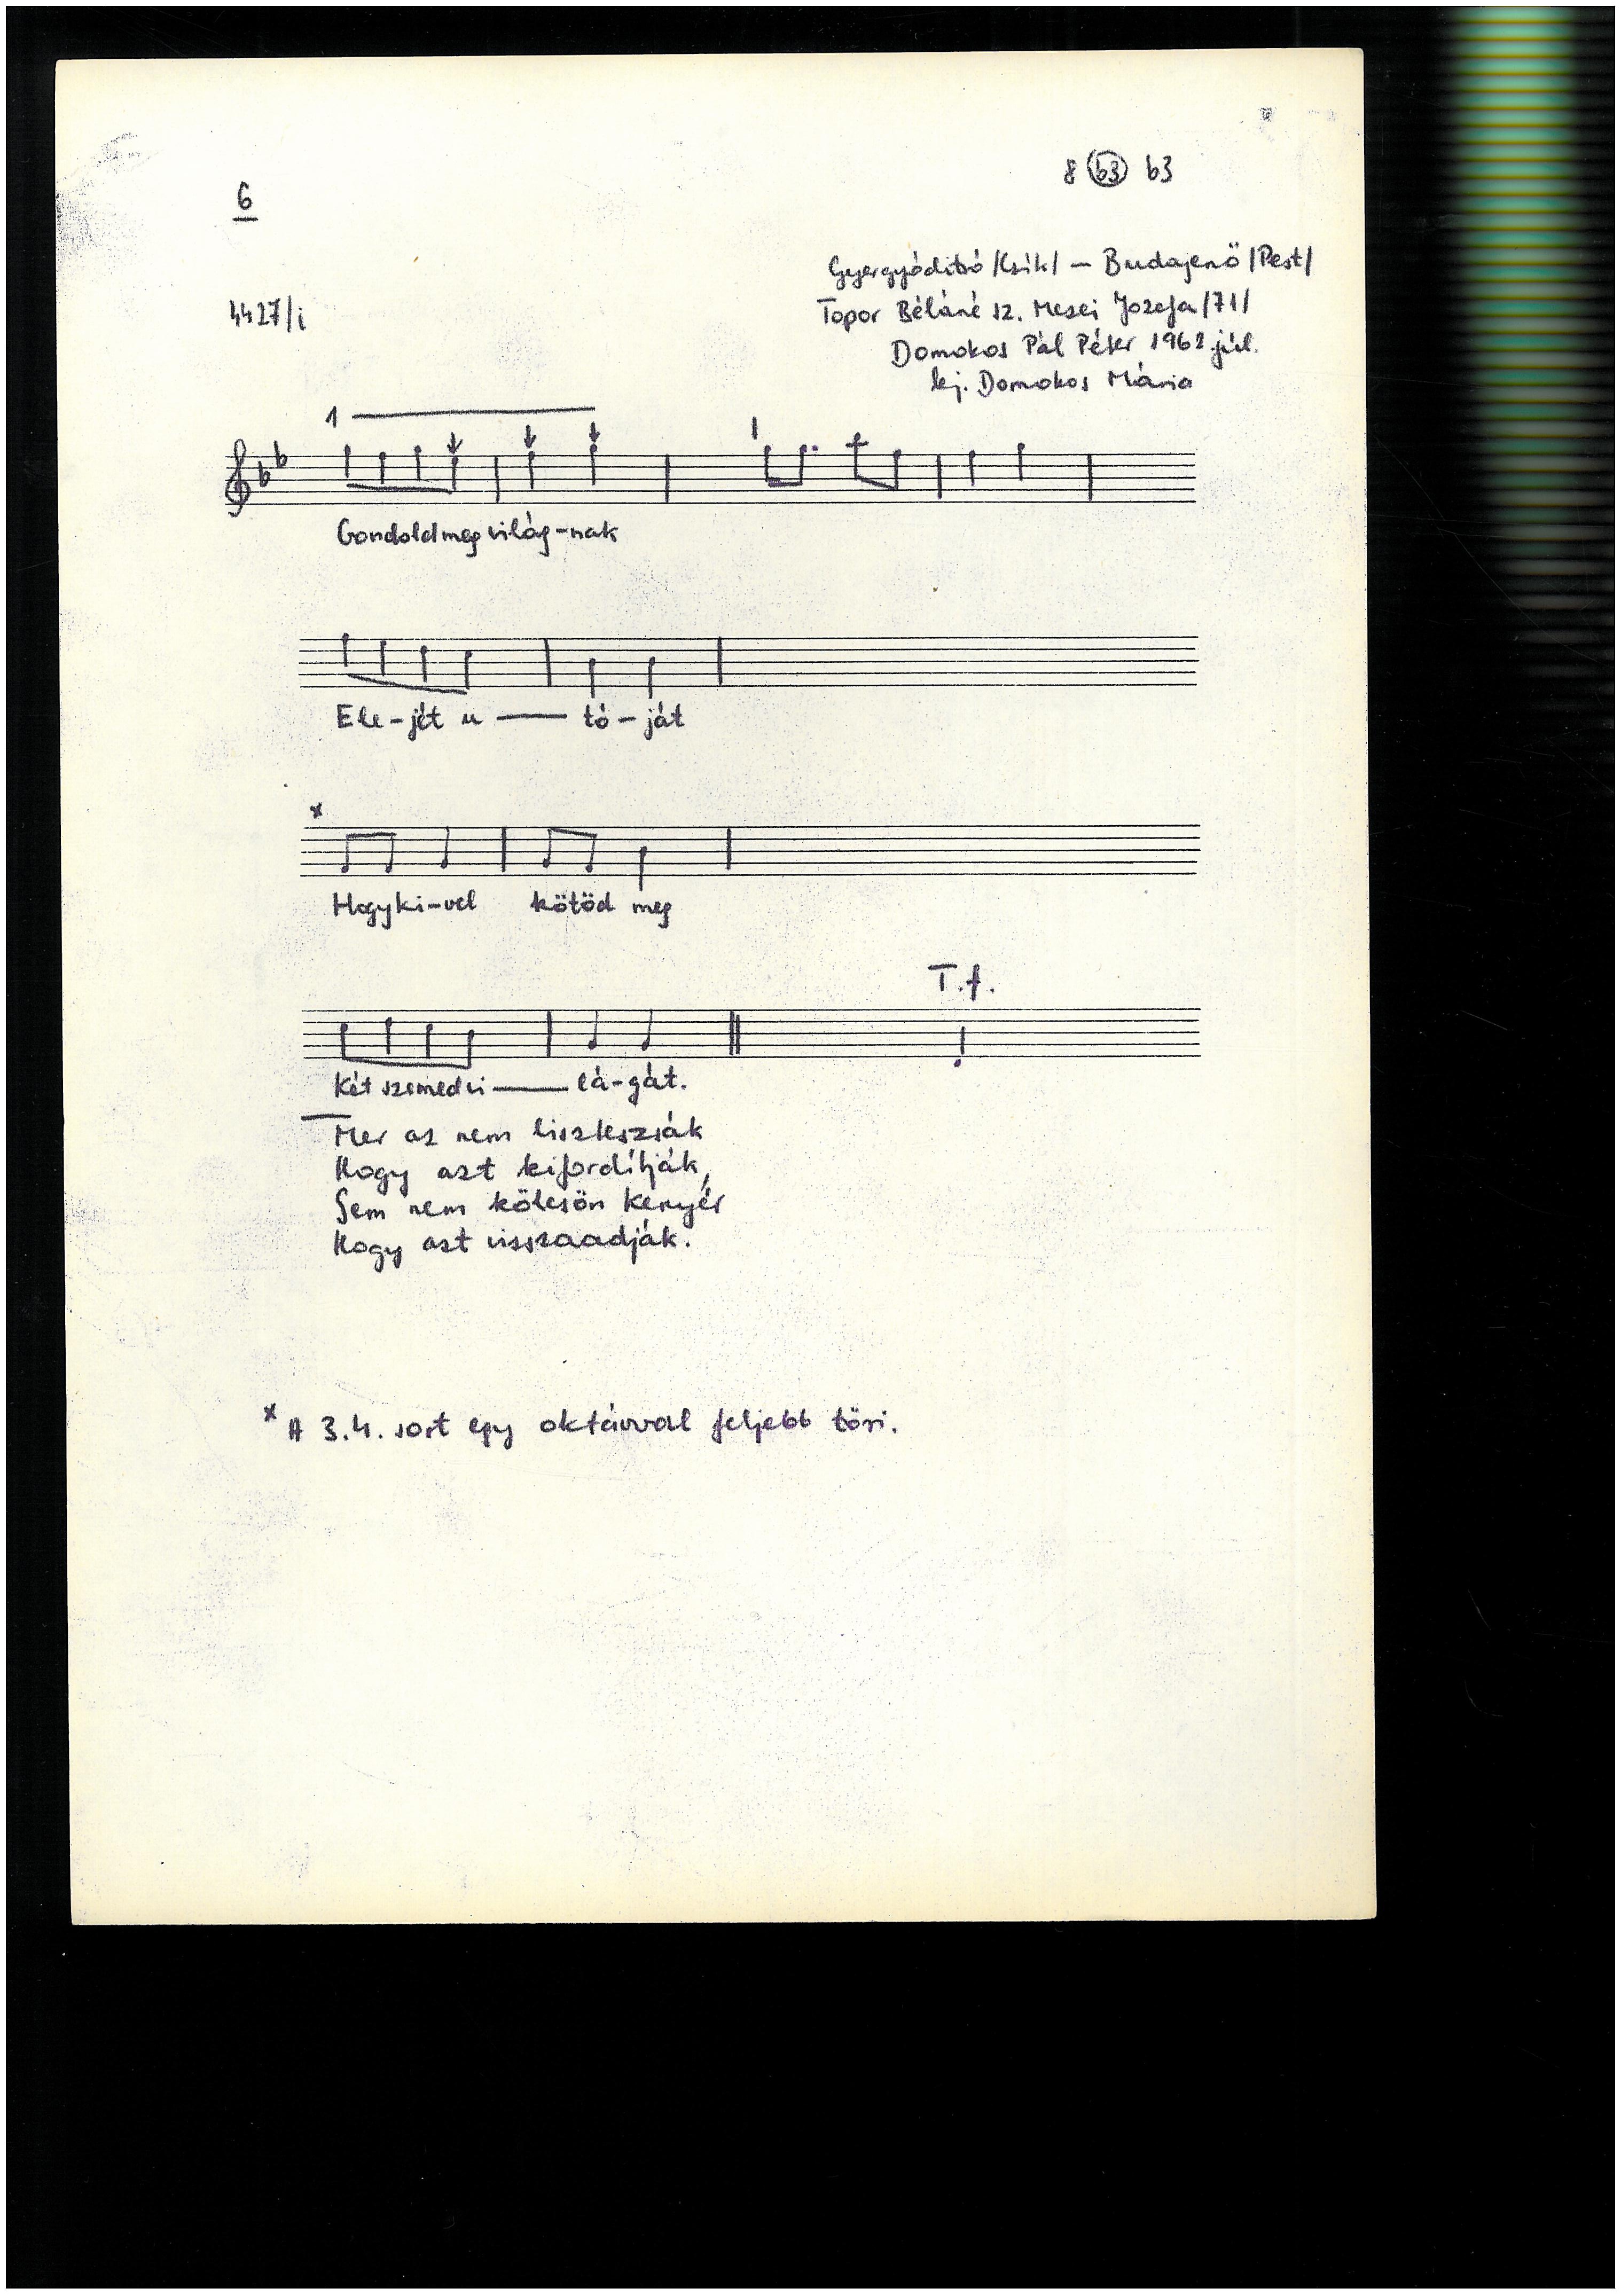 8 b3 b3
6
Gyergyóditró /Csík/ – Budajenő /Pest/
4427/i
Topor Béláné sz. Mezei Jozefa /71/
Domokos Pál Péter 1962 júl.
lej. Domokos Mária
1
1
Gondold meg világ-nak
Ele-jét u — tó-ját
x
Hogy ki-vel kötöd meg
T.f.
Két szemed vi — lá-gát.
Mer az nem
Hogy azt kifordítják,
Sem nem kölcsön kenyér
Hogy azt visszaadják.
x A 3.4. sort egy oktávval feljebb